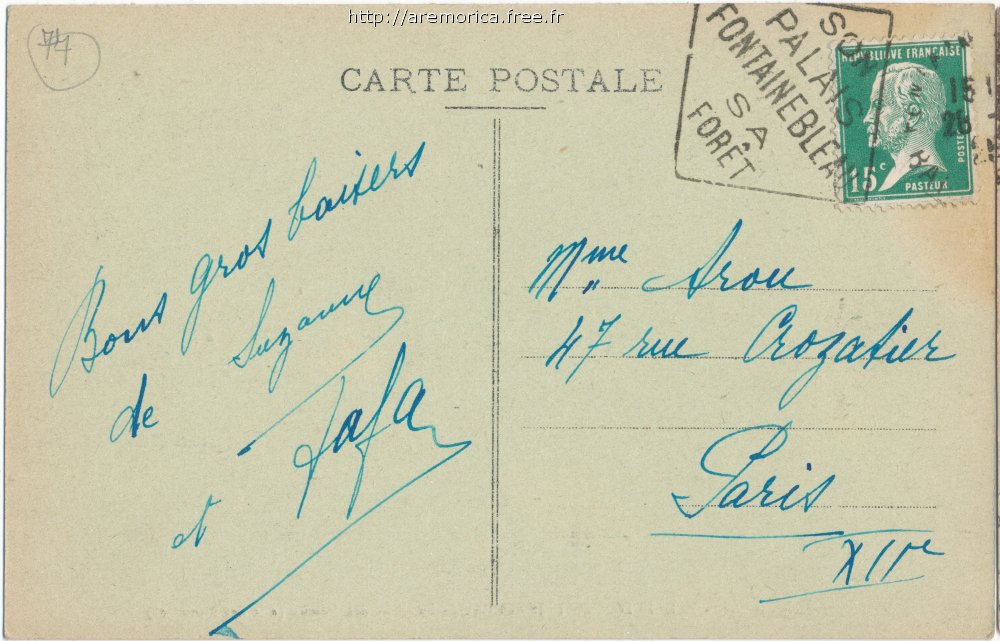 http://aremorica.free.fr
74
CARTE POSTALE
SON
PALAIS
FONTAINEBLEAU
SA
FORÊT
REPUBLIQUE FRANÇAISE
POSTES
15c
PASTEUR
Bons gros baisers
de Suzanne
et Fafa
Mme Arou
47 rue Crozatier
Paris
XIIe